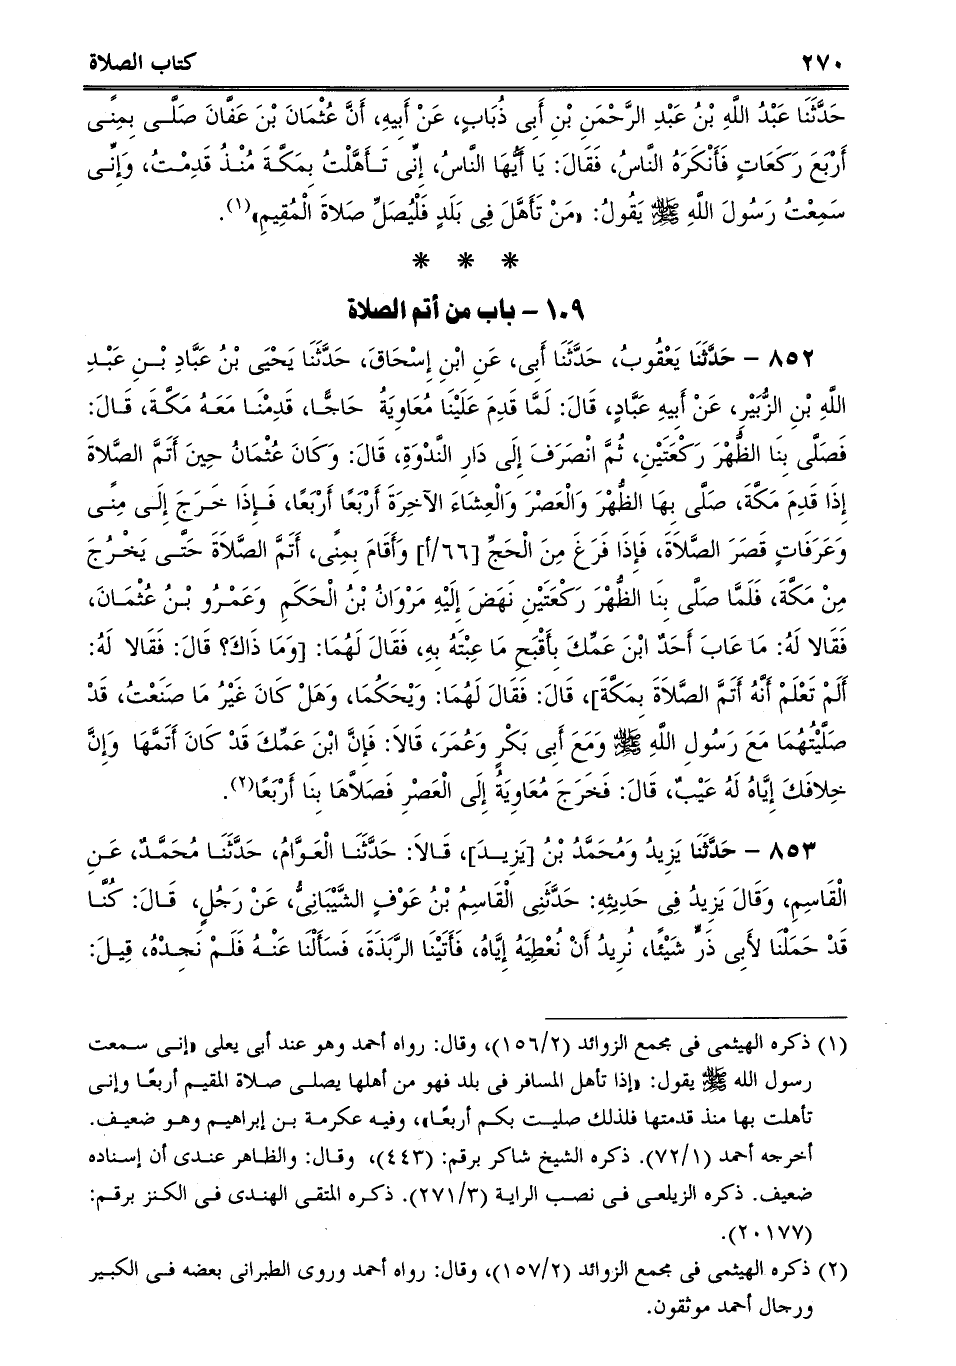 ٢٧٠ كتاب الصلاة
حَدَّثَنَا عَبْدُ اللَّهِ بْنُ عَبْدِ الرَّحْمَنِ بْنِ أَبِى ذُبَابٍ، عَنْ أَبِيهِ، أَنَّ عُثْمَانَ بْنَ عَفَّانَ صَلَّى بِمِنًى
أَرْبَعَ رَكَعَاتٍ فَأَنْكَرَهُ النَّاسُ، فَقَالَ: يَا أَيُّهَا النَّاسُ، إِنِّى تَأَهَّلْتُ بِمَكَّةَ مُنْذُ قَدِمْتُ، وَإِنِّى
سَمِعْتُ رَسُولَ اللَّهِ ﷺ يَقُولُ: «مَنْ تَأَهَّلَ فِى بَلَدٍ فَلْيُصَلِّ صَلاَةَ الْمُقِيمِ»(١).
* * *
١٠٩ - باب من أتم الصلاة
٨٥٢ - حَدَّثَنَا يَعْقُوبُ، حَدَّثَنَا أَبِى، عَنِ ابْنِ إِسْحَاقَ، حَدَّثَنَا يَحْيَى بْنُ عَبَّادِ بْنِ عَبْدِ
اللَّهِ بْنِ الزُّبَيْرِ، عَنْ أَبِيهِ عَبَّادٍ، قَالَ: لَمَّا قَدِمَ عَلَيْنَا مُعَاوِيَةُ حَاجًّا، قَدِمْنَا مَعَهُ مَكَّةَ، قَالَ:
فَصَلَّى بِنَا الظُّهْرَ رَكْعَتَيْنِ، ثُمَّ انْصَرَفَ إِلَى دَارِ النَّدْوَةِ، قَالَ: وَكَانَ عُثْمَانُ حِينَ أَتَمَّ الصَّلاَةَ
إِذَا قَدِمَ مَكَّةَ، صَلَّى بِهَا الظُّهْرَ وَالْعَصْرَ وَالْعِشَاءَ الآخِرَةَ أَرْبَعًا أَرْبَعًا، فَإِذَا خَرَجَ إِلَى مِنًى
وَعَرَفَاتٍ قَصَرَ الصَّلاَةَ، فَإِذَا فَرَغَ مِنَ الْحَجِّ [٦٦/أ] وَأَقَامَ بِمِنًى، أَتَمَّ الصَّلاَةَ حَتَّى يَخْرُجَ
مِنْ مَكَّةَ، فَلَمَّا صَلَّى بِنَا الظُّهْرَ رَكْعَتَيْنِ نَهَضَ إِلَيْهِ مَرْوَانُ بْنُ الْحَكَمِ وَعَمْرُو بْنُ عُثْمَانَ،
فَقَالا لَهُ: مَا عَابَ أَحَدٌ ابْنَ عَمِّكَ بِأَقْبَحِ مَا عِبْتَهُ بِهِ، فَقَالَ لَهُمَا: [وَمَا ذَاكَ؟ قَالَ: فَقَالا لَهُ:
أَلَمْ تَعْلَمْ أَنَّهُ أَتَمَّ الصَّلاَةَ بِمَكَّةَ]، قَالَ: فَقَالَ لَهُمَا: وَيْحَكُمَا، وَهَلْ كَانَ غَيْرُ مَا صَنَعْتُ، قَدْ
صَلَّيْتُهُمَا مَعَ رَسُولِ اللَّهِ ﷺ وَمَعَ أَبِى بَكْرٍ وَعُمَرَ، قَالاَ: فَإِنَّ ابْنَ عَمِّكَ قَدْ كَانَ أَتَمَّهَا وَإِنَّ
خِلافَكَ إِيَّاهُ لَهُ عَيْبٌ، قَالَ: فَخَرَجَ مُعَاوِيَةُ إِلَى الْعَصْرِ فَصَلاَّهَا بِنَا أَرْبَعًا(٢).
٨٥٣ - حَدَّثَنَا يَزِيدُ وَمُحَمَّدُ بْنُ [يَزِيدَ]، قَالاَ: حَدَّثَنَا الْعَوَّامُ، حَدَّثَنَا مُحَمَّدٌ، عَنِ
الْقَاسِمِ، وَقَالَ يَزِيدُ فِى حَدِيثِهِ: حَدَّثَنِى الْقَاسِمُ بْنُ عَوْفٍ الشَّيْبَانِىُّ، عَنْ رَجُلٍ، قَالَ: كُنَّا
قَدْ حَمَلْنَا لأَبِى ذَرٍّ شَيْئًا، نُرِيدُ أَنْ نُعْطِيَهُ إِيَّاهُ، فَأَتَيْنَا الرَّبَذَةَ، فَسَأَلْنَا عَنْهُ فَلَمْ نَجِدْهُ، قِيلَ:
(١) ذكره الهيثمى فى مجمع الزوائد (١٥٦/٢)، وقال: رواه أحمد وهو عند أبى يعلى «إنى سمعت
رسول الله ﷺ يقول: «إذا تأهل المسافر فى بلد فهو من أهلها يصلى صلاة المقيم أربعًا وإنى
تأهلت بها منذ قدمتها فلذلك صليت بكم أربعًا»، وفيه عكرمة بن إبراهيم وهو ضعيف.
أخرجه أحمد (٧٢/١). ذكره الشيخ شاكر برقم: (٤٤٣)، وقال: والظاهر عندى أن إسناده
ضعيف. ذكره الزيلعى فى نصب الراية (٢٧١/٣). ذكره المتقى الهندى فى الكنز برقم:
(٢٠١٧٧).
(٢) ذكره الهيثمى فى مجمع الزوائد (١٥٧/٢)، وقال: رواه أحمد وروى الطبرانى بعضه فى الكبير
ورجال أحمد موثقون.